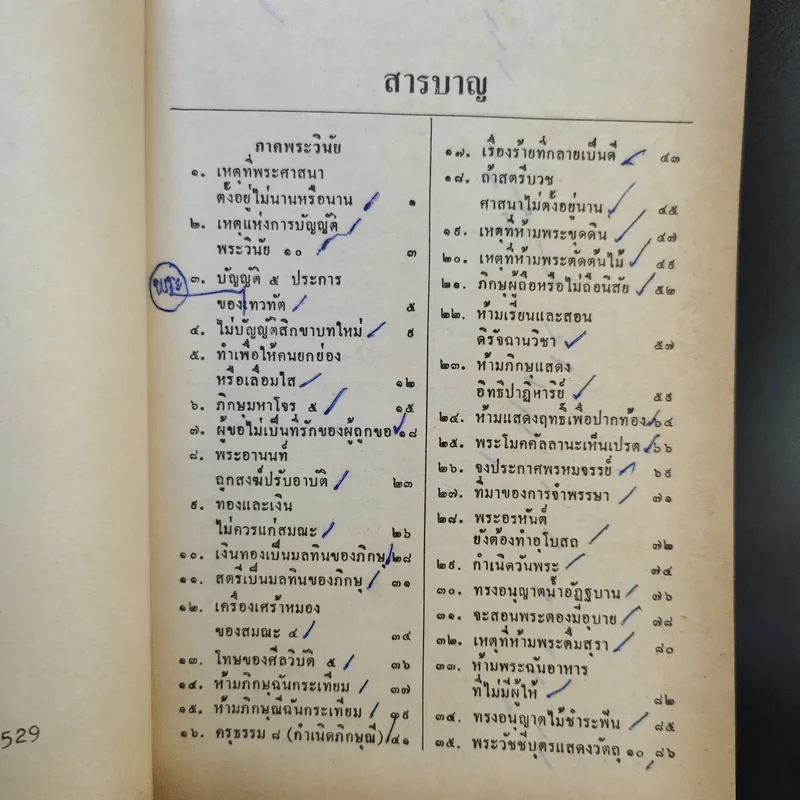 สารบาญ
ภาคพระวินัย
๑. เหตุที่พระศาสนา
ตั้งอยู่ไม่นานหรือนาน ๑
๒. เหตุแห่งการบัญญัติ
พระวินัย ๑๐ ๓
๓. บัญญัติ ๕ ประการ
ของเทวทัต ๕
๔. ไม่บัญญัติสิกขาบทใหม่ ๙
๕. ทำเพื่อให้คนยกย่อง
หรือเลื่อมใส ๑๒
๖. ภิกษุมหาโจร ๕ ๑๕
๗. ผู้ขอไม่เป็นที่รักของผู้ถูกขอ ๑๘
๘. พระอานนท์
ถูกสงฆ์ปรับอาบัติ ๒๓
๙. ทองและเงิน
ไม่ควรแก่สมณะ ๒๖
๑๐. เงินทองเป็นมลทินของภิกษุ ๒๘
๑๑. สตรีเป็นมลทินของภิกษุ ๓๑
๑๒. เครื่องเศร้าหมอง
ของสมณะ ๔ ๓๔
๑๓. โทษของศีลวิบัติ ๕ ๓๖
๑๔. ห้ามภิกษุฉันกระเทียม ๓๗
๑๕. ห้ามภิกษุณีฉันกระเทียม ๓๙
๑๖. ครุธรรม ๘ (กำเนิดภิกษุณี) ๔๑
๑๗. เรื่องร้ายที่กลายเป็นดี ๔๓
๑๘. ถ้าสตรีบวช
ศาสนาไม่ตั้งอยู่นาน ๔๕
๑๙. เหตุที่ห้ามพระขุดดิน ๔๗
๒๐. เหตุที่ห้ามพระตัดต้นไม้ ๔๙
๒๑. ภิกษุผู้ถือหรือไม่ถือนิสัย ๕๒
๒๒. ห้ามเรียนและสอน
ดิรัจฉานวิชา ๕๗
๒๓. ห้ามภิกษุแสดง
อิทธิปาฏิหาริย์ ๕๙
๒๔. ห้ามแสดงฤทธิ์เพื่อปากท้อง ๖๔
๒๕. พระโมคคัลลานะเห็นเปรต ๖๖
๒๖. จงประกาศพรหมจรรย์ ๖๙
๒๗. ที่มาของการจำพรรษา ๗๑
๒๘. พระอรหันต์
ยังต้องทำอุโบสถ ๗๒
๒๙. กำเนิดวันพระ ๗๔
๓๐. ทรงอนุญาตน้ำอัฏฐบาน ๗๖
๓๑. จะสอนพระตองมีอุบาย ๗๘
๓๒. เหตุที่ห้ามพระดื่มสุรา ๘๐
๓๓. ห้ามพระฉันอาหาร
ที่ไม่มีผู้ให้ ๘๒
๓๔. ทรงอนุญาตไม้ชำระฟัน ๘๕
๓๕. พระวัชชีบุตรแสดงวัตถุ ๑๐ ๘๖
529